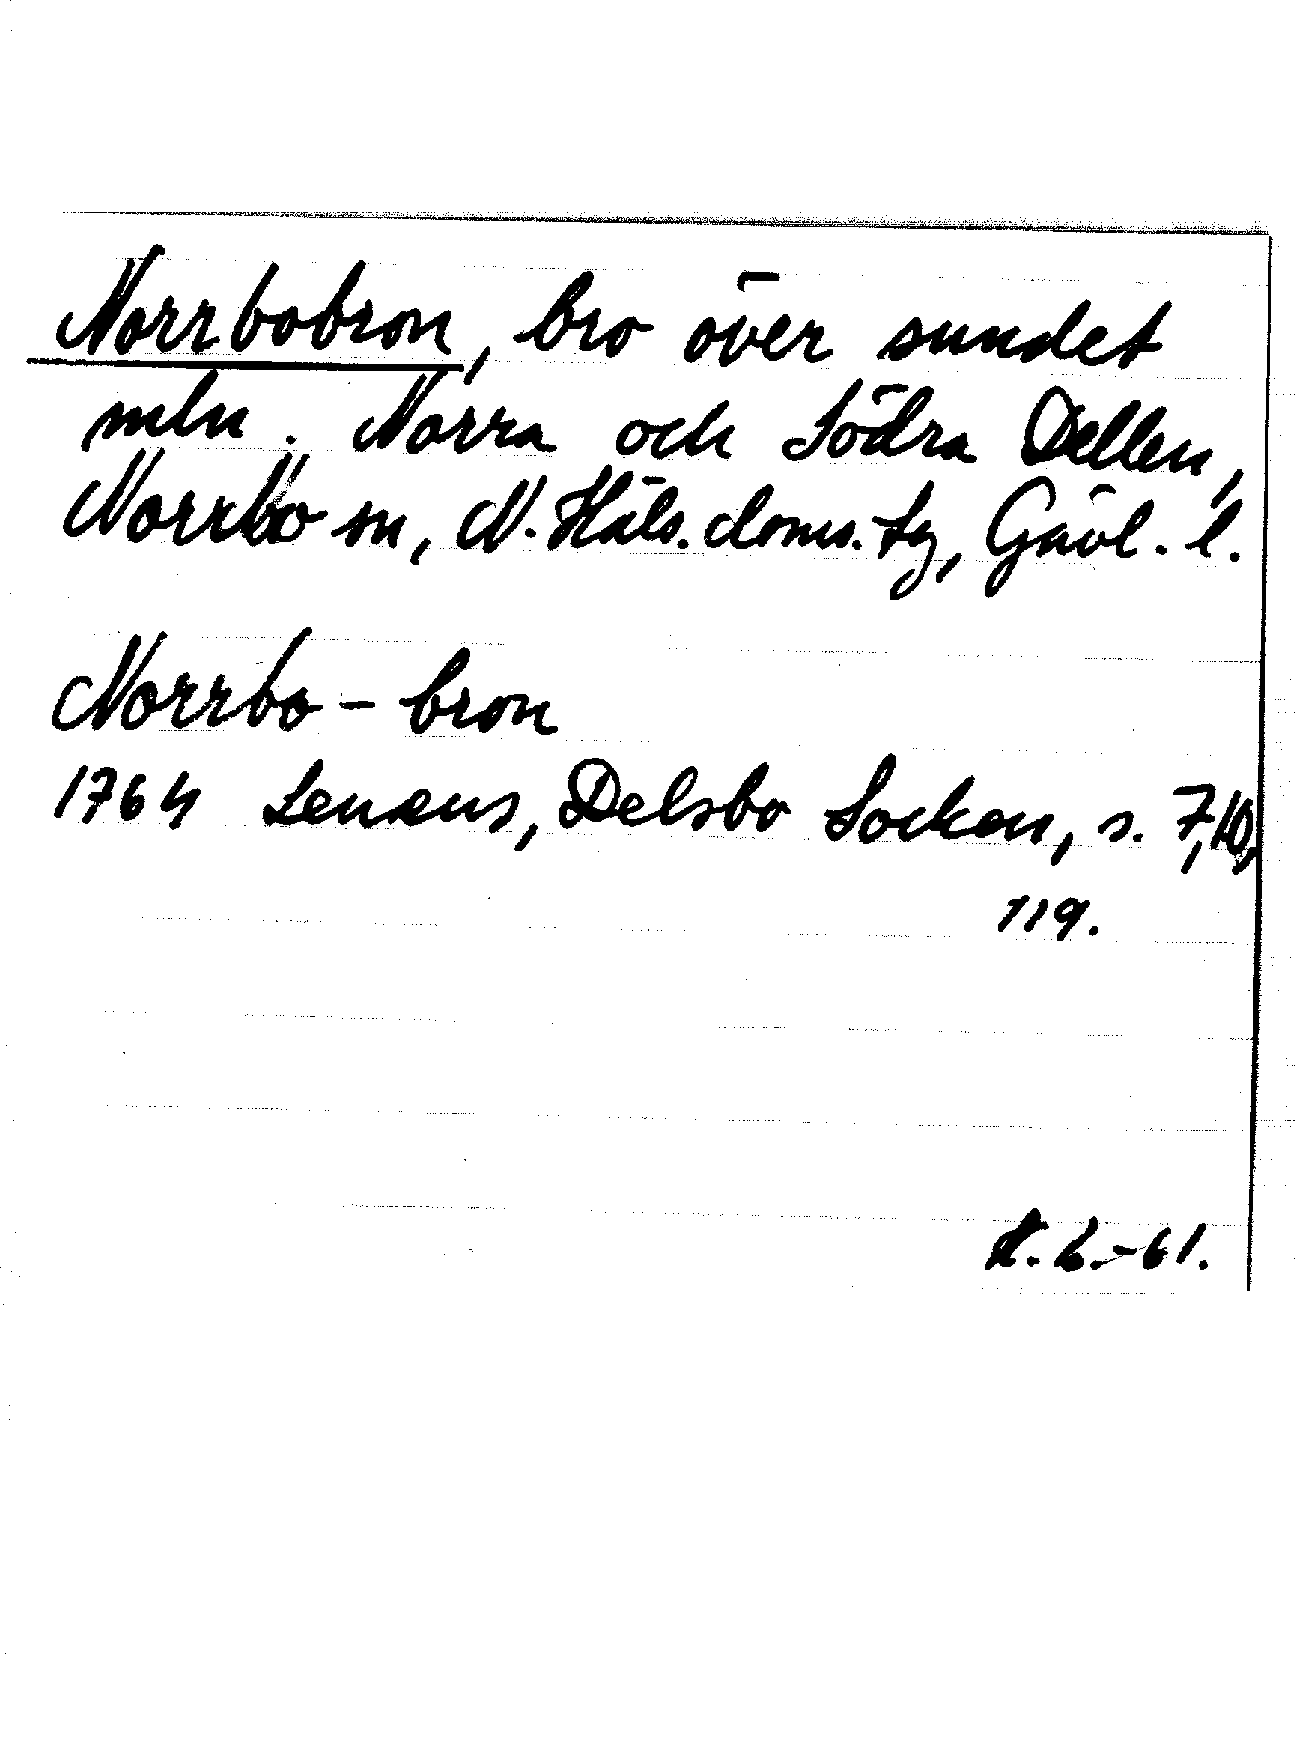 Norrbobron, bro över sundet
mln. Norra och Södra Dellen,
Norrbo sn, N. Häls. doms. tg, Gävl. l.
Norrbo - bron
1764 Lenæus, Delsbo Socken, s. 7, 10,
119.
-61.